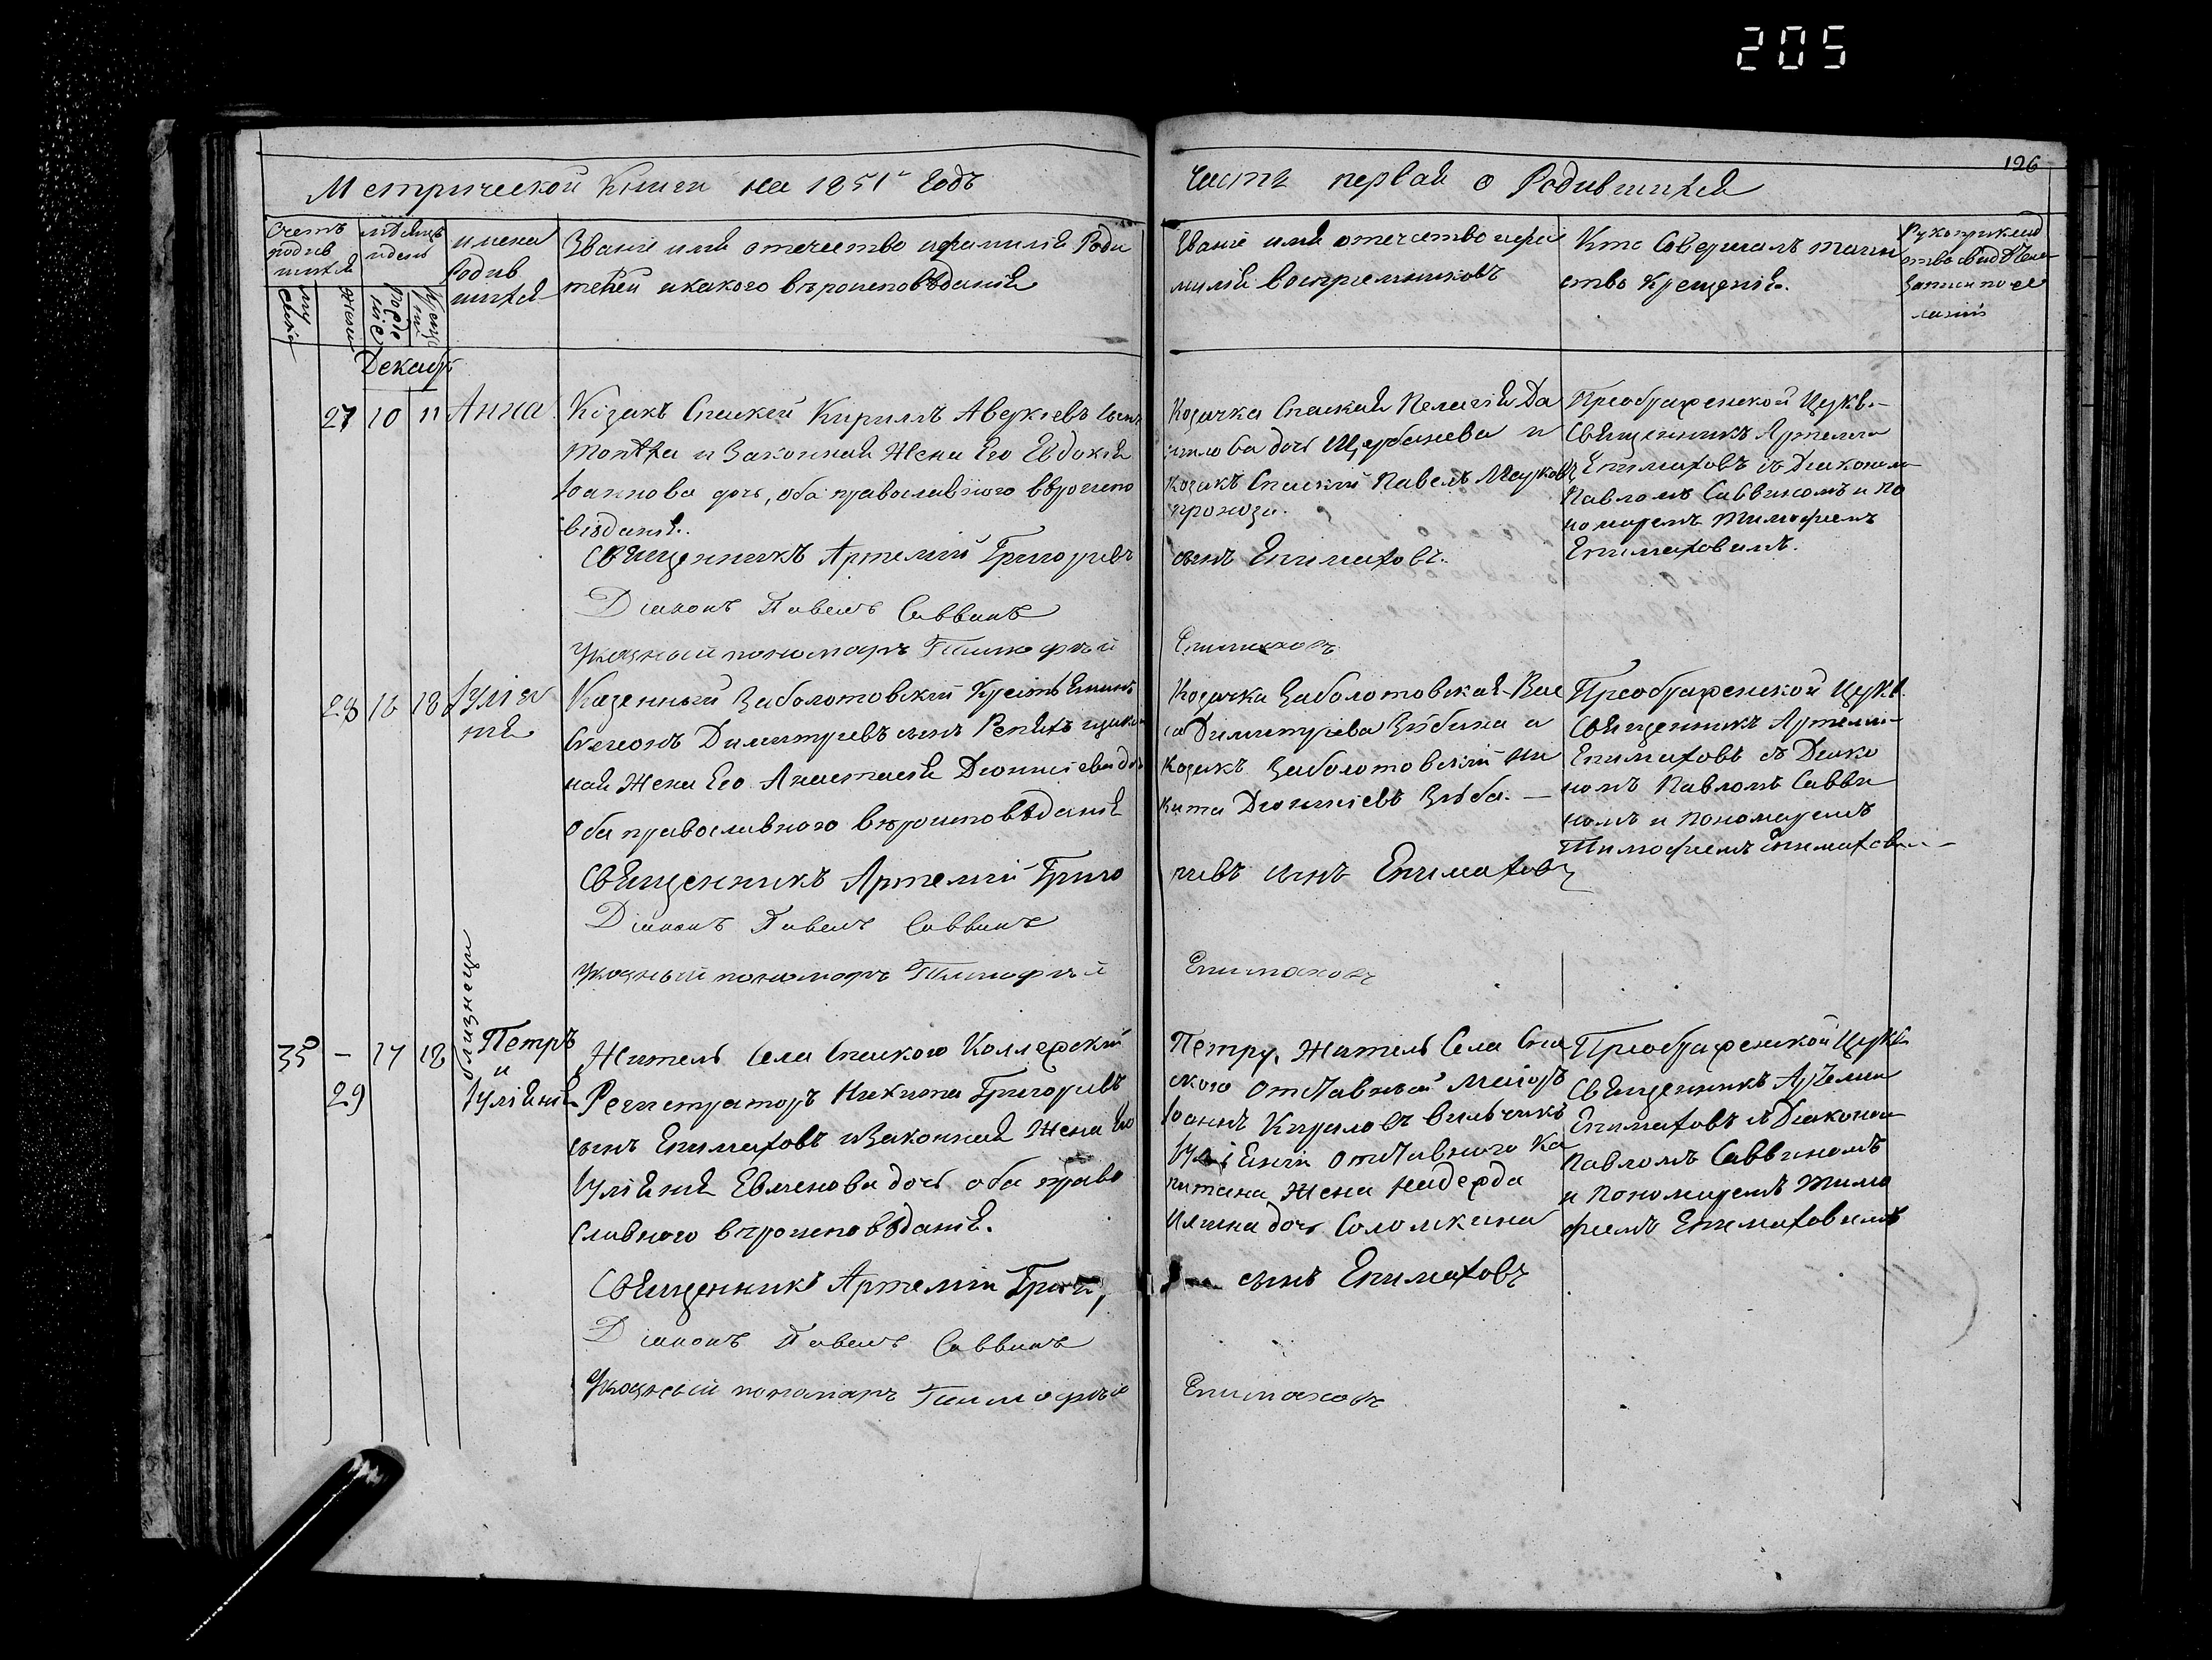 205
126
Метрической Книги на 1851й Годъ
Часть первая о Родившихся
Счетъ родив шихся
муж
женск
мѣсяцъ и день
рожде нія
крещ
имена Родив шихся
Званіе имя отечество и фамилія Роди
телей и какого вѣроисповѣданія
Званіе имя отечество и фа
милія воспріемниковъ
Кто Совершалъ таин
ство Крещенія.
Рукоприклад
ство свидѣтелей
Записи по же
ланію
Декабр
27 10 11 Анна
Козакъ Спаскій Кириллъ Аверкіевъ сынъ
и Законная Жена Его Евдокія
Іоаннова дочь, оба православного вѣроиспо
вѣданія.
Священникъ Артемій Григорьевъ
Діаконъ Павелъ Саввинъ
Указный пономарь Тимофѣй
Козачка Спаская Пелагія Да
нилова дочь Щербакева и
козакъ Спаскій Павелъ
сынъ Епимаховъ.
Епимаховъ
Преображенской Церкв.
Священникъ Артемій
Епимаховъ съ Діакономъ
Павломъ Саввиномъ и по
номаремъ Тимофіемъ
Епимаховимъ.
28 16 18 Іуліа нія
Казенный Заболотовскій Крестьянинъ
Димитріевъ сынъ Репяхъ
ная Жена Его Анастасія Діонисіева дочь
Оба православного вѣроисповѣданія
Священникъ Артемій Григо
Діаконъ Павелъ Саввинъ
Указный пономарь Тимофѣй
Козачка Заболотовская Вас
са Димитріева Зябина и
Козакъ Заболотовскій Ни
кита Діонисіевъ Зяба. —
ріевъ сынъ Епимаховъ
Епимаховъ
Преображенской Церкв.
Священникъ Артемій
Епимаховъ съ Діако
номъ Павломъ Савви
номъ и Пономаремъ
Тимофіемъ Епимахов
близнецы
35 – 17 18 Петръ
и
29 Іуліянія
Житель Села Спаского Коллежскій
Регистраторъ Никита Григорьевъ
сынъ Епимаховъ и Законная Жена Его
Іуліянія Евменова дочь оба право
славного вѣроисповѣданія.
Священникъ Артемій Григ,
Діаконъ Павелъ Саввинъ
Указный пономарь Тимофѣй
Петру, Житель Села Спа
ского отставной Маіоръ
Іоаннъ Кириловъ Вильчикъ
Іуліяніи отставного Ка
питана Жена Надежда
дочь Соломкина
сынъ Епимаховъ
Епимаховъ
Преображенской Церкв
Священникъ Артемій
Епимаховъ съ Діаконом
Павломъ Саввиномъ
и Пономаремъ Тимо
фіемъ Епимаховимъ